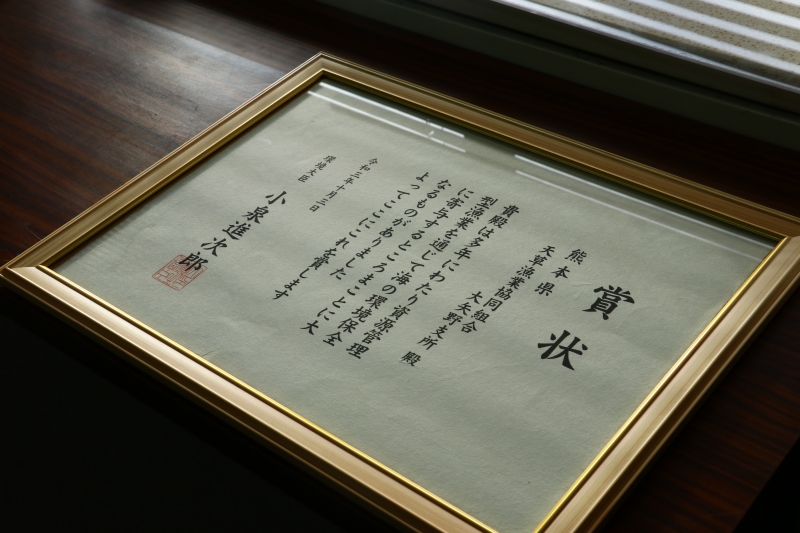 賞状
熊本県
天草漁業協同組合
大矢野支所 殿
貴殿は多年にわたり資源管理
型漁業を通じて海の環境保全
に寄与するところまことに大
なるものがありました
よってここにこれを賞します
令和三年十月三日
環境大臣
小泉進次郎